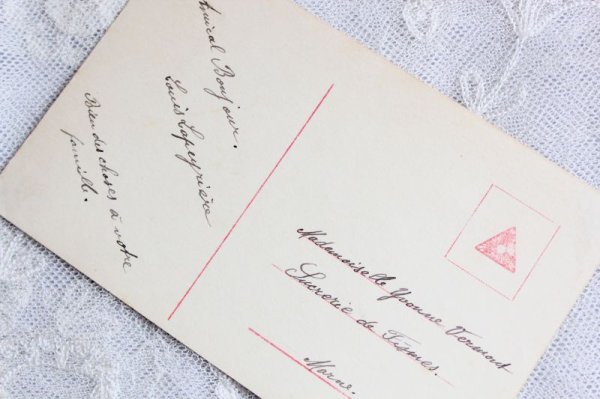 Amical Bonjour.
Louis Lapeyrière
Bien des choses à votre
famille.
Mademoiselle Yvonne Vermont
Sucrerie de Fismes.
Marne.